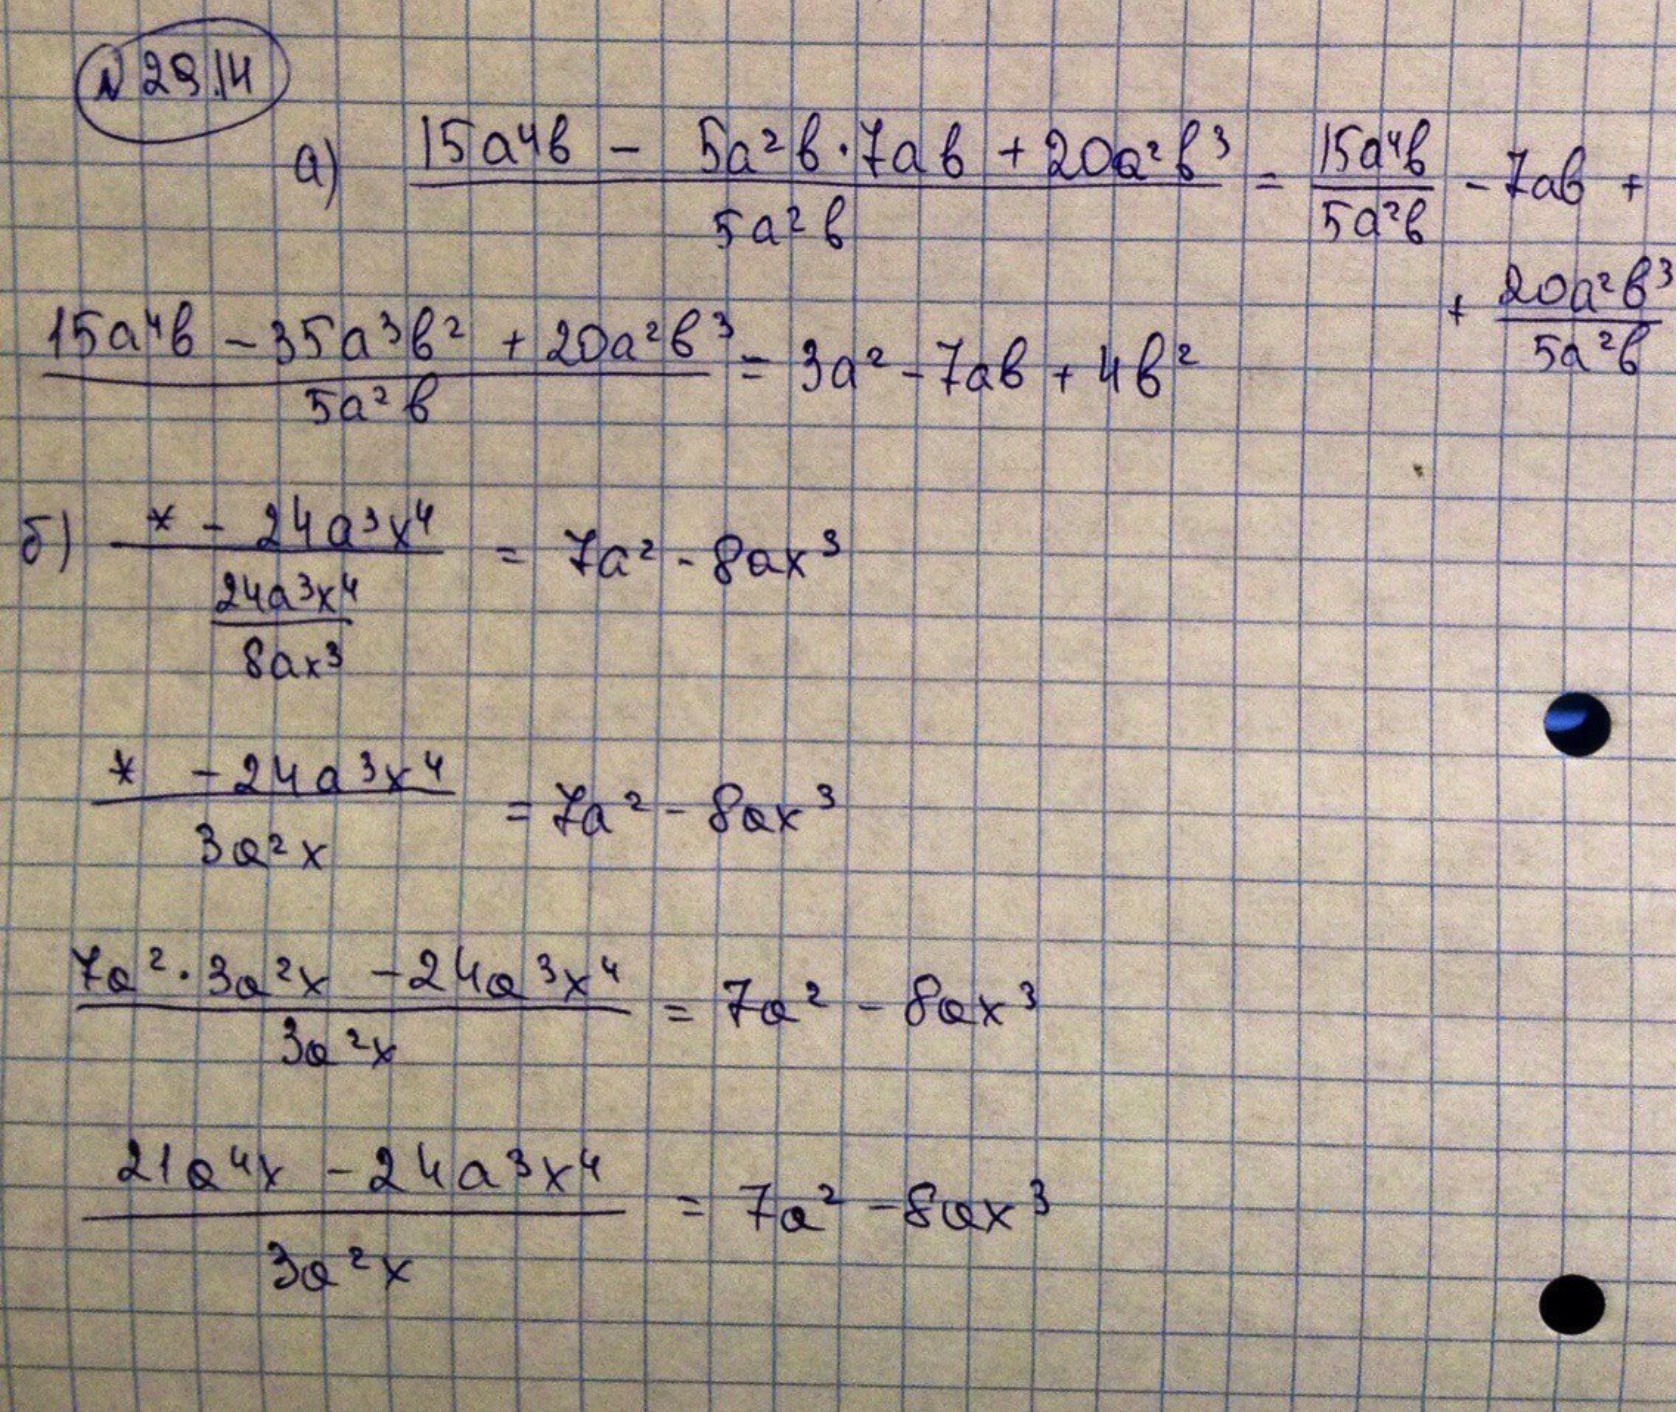 № 29.14
а) (15a⁴b − 5a²b · 7ab + 20a²b³) / (5a²b) = 15a⁴b / (5a²b) − 7ab +
+ 20a²b³ / (5a²b)
(15a⁴b − 35a³b² + 20a²b³) / (5a²b) = 3a² − 7ab + 4b²
б) (* − 24a³x⁴) / (24a³x⁴ / (8ax³)) = 7a² − 8ax³
(* − 24a³x⁴) / (3a²x) = 7a² − 8ax³
(7a² · 3a²x − 24a³x⁴) / (3a²x) = 7a² − 8ax³
(21a⁴x − 24a³x⁴) / (3a²x) = 7a² − 8ax³